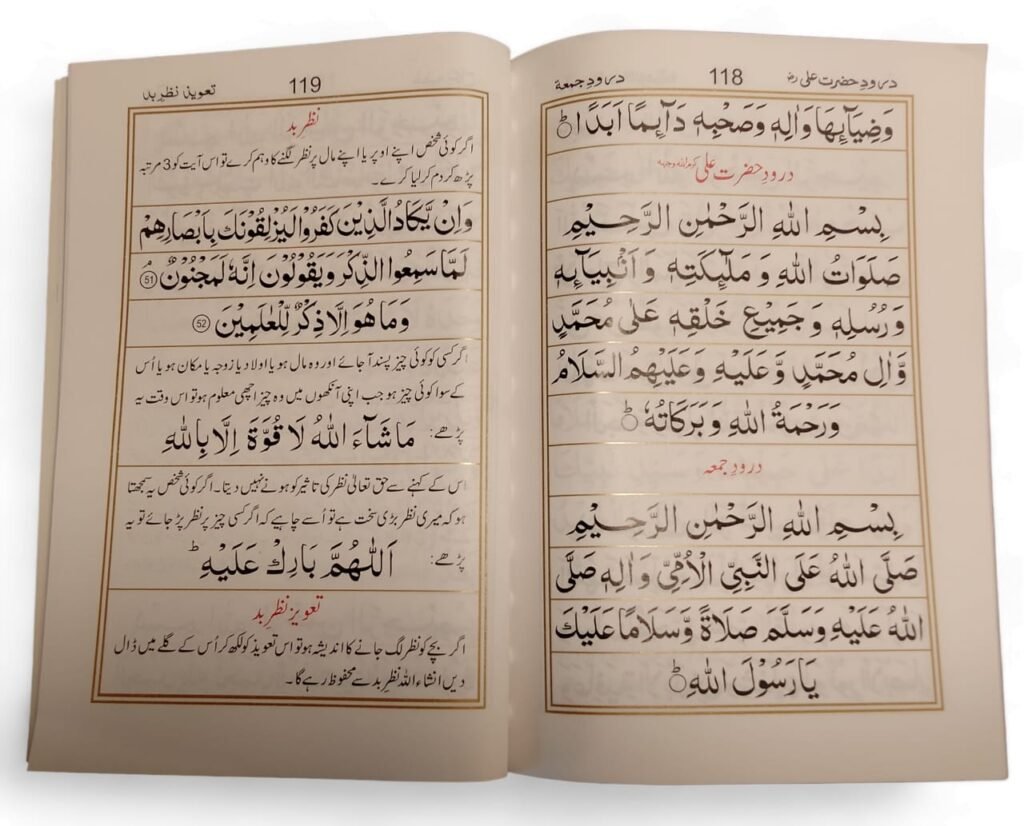 درودِ حضرت علی رض 118 درودِ جمعة
وَضِيَآئِهَا وَاٰلِهٖ وَصَحْبِهٖ دَآئِمًا اَبَدًا ؕ
درودِ حضرت علی کرم اللہ وجہہ
بِسْمِ اللهِ الرَّحْمٰنِ الرَّحِيْمِ
صَلَوَاتُ اللهِ وَ مَلٰٓئِكَتِهٖ وَ اَنْۢبِيَآئِهٖ
وَ رُسُلِهٖ وَ جَمِيْعِ خَلْقِهٖ عَلٰى مُحَمَّدٍ
وَّ اٰلِ مُحَمَّدٍ وَّ عَلَيْهِ وَ عَلَيْهِمُ السَّلَامُ
وَ رَحْمَةُ اللهِ وَ بَرَكَاتُهٗ ؕ
درودِ جمعہ
بِسْمِ اللهِ الرَّحْمٰنِ الرَّحِيْمِ
صَلَّى اللهُ عَلَى النَّبِيِّ الْاُمِّيِّ وَ اٰلِهٖ صَلَّى
اللهُ عَلَيْهِ وَسَلَّمَ صَلَاةً وَّسَلَامًا عَلَيْكَ
يَا رَسُوْلَ اللهِ ؕ
119 تعویذ نظرِ بد
نظرِ بد
اگر کوئی شخص اپنے اوپر یا اپنے مال پر نظر لگنے کا وہم کرے تو اس آیت کو 3 مرتبہ
پڑھ کر دم کر لیا کرے۔
وَاِنْ يَّكَادُ الَّذِيْنَ كَفَرُوْا لَيُزْلِقُوْنَكَ بِاَبْصَارِهِمْ
لَمَّا سَمِعُوا الذِّكْرَ وَيَقُوْلُوْنَ اِنَّهٗ لَمَجْنُوْنٌ ۘ 51
وَمَا هُوَ اِلَّا ذِكْرٌ لِّلْعٰلَمِيْنَ 52
اگر کسی کو کوئی چیز پسند آ جائے اور وہ مال ہو یا اولاد یا زوجہ یا مکان ہو یا اُس
کے سوا کوئی چیز ہو جب اپنی آنکھوں میں وہ چیز اچھی معلوم ہو تو اس وقت یہ
پڑھے: مَا شَآءَ اللهُ لَا قُوَّةَ اِلَّا بِاللهِ
اس کے کہنے سے حق تعالیٰ نظر کی تاثیر کو ہونے نہیں دیتا۔ اگر کوئی شخص یہ سمجھتا
ہو کہ میری نظر بڑی سخت ہے تو اُسے چاہیے کہ اگر کسی چیز پر نظر پڑ جائے تو یہ
پڑھے: اَللّٰهُمَّ بَارِكْ عَلَيْهِ ؕ
تعویز نظرِ بد
اگر بچے کو نظر لگ جانے کا اندیشہ ہو تو اس تعویذ کو لکھ کر اُس کے گلے میں ڈال
دیں انشاء اللہ نظرِ بد سے محفوظ رہے گا۔